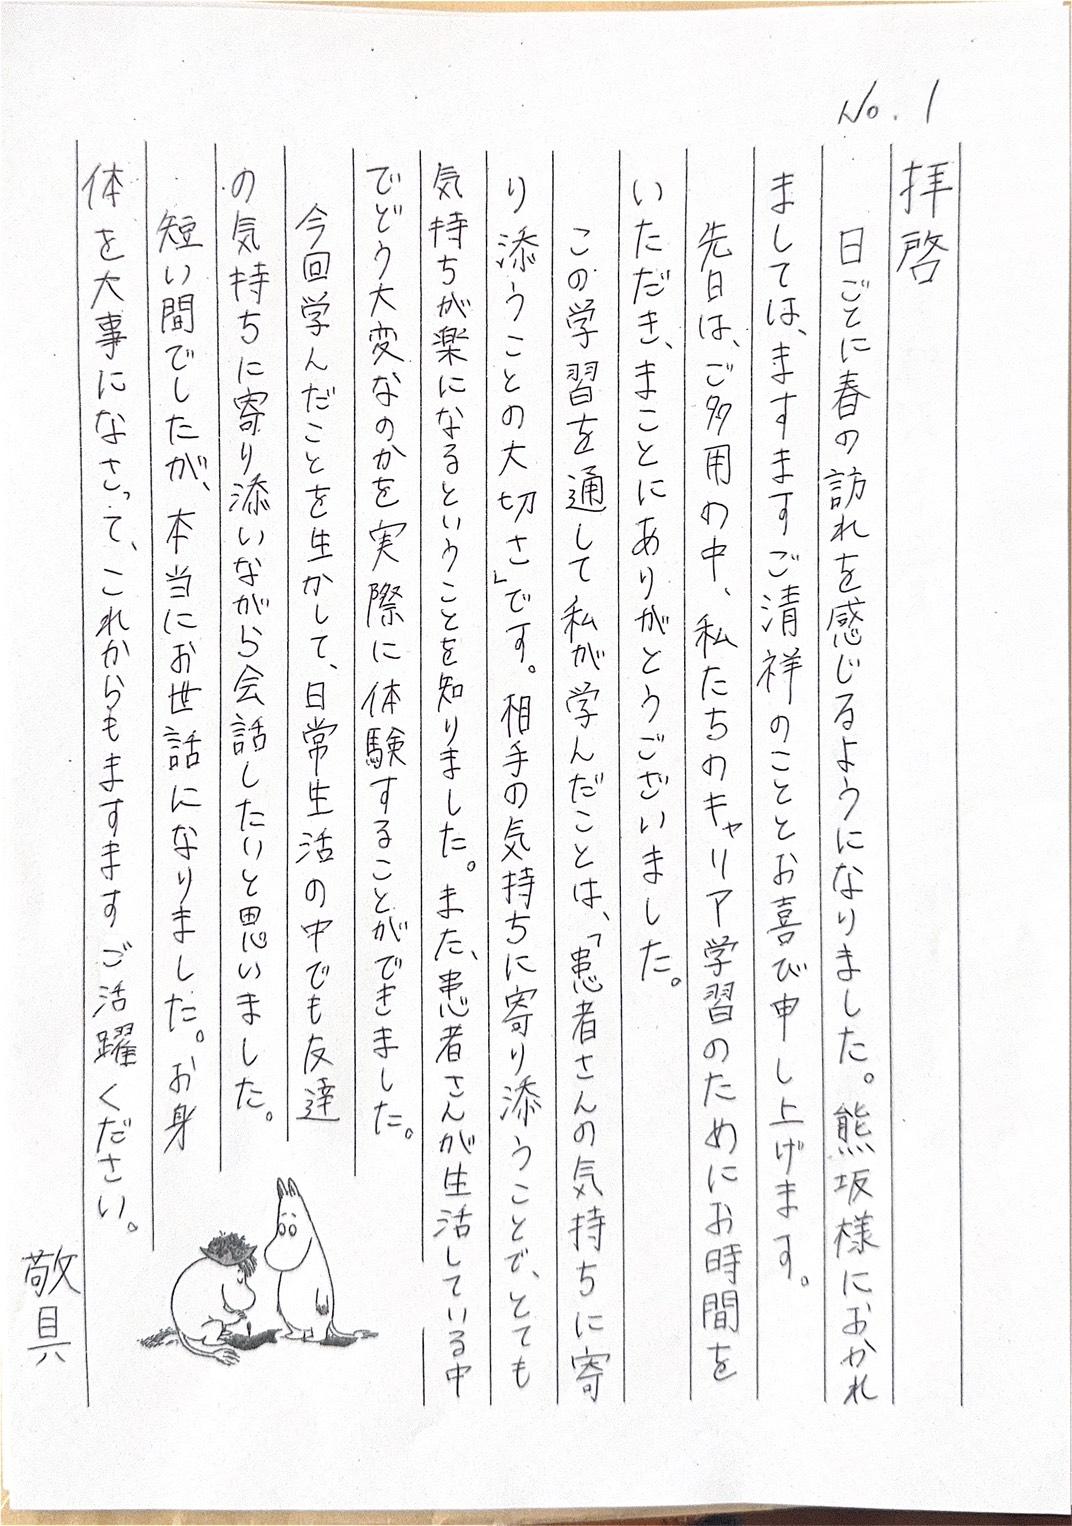 No. 1
拝啓
日ごとに春の訪れを感じるようになりました。熊坂様におかれ
ましては、ますますご清祥のこととお喜び申し上げます。
先日は、ご多用の中、私たちのキャリア学習のためにお時間を
いただき、まことにありがとうございました。
この学習を通して私が学んだことは、「患者さんの気持ちに寄
り添うことの大切さ」です。相手の気持ちに寄り添うことで、とても
気持ちが楽になるということを知りました。また、患者さんが生活している中
でどう大変なのかを実際に体験することができました。
今回学んだことを生かして、日常生活の中でも友達
の気持ちに寄り添いながら会話したいと思いました。
短い間でしたが、本当にお世話になりました。お身
体を大事になさって、これからもますますご活躍ください。
敬具